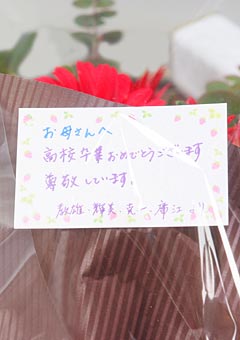 お母さんへ
高校卒業おめでとうございます
尊敬しています。
敏雄・輝美・克一・康江より